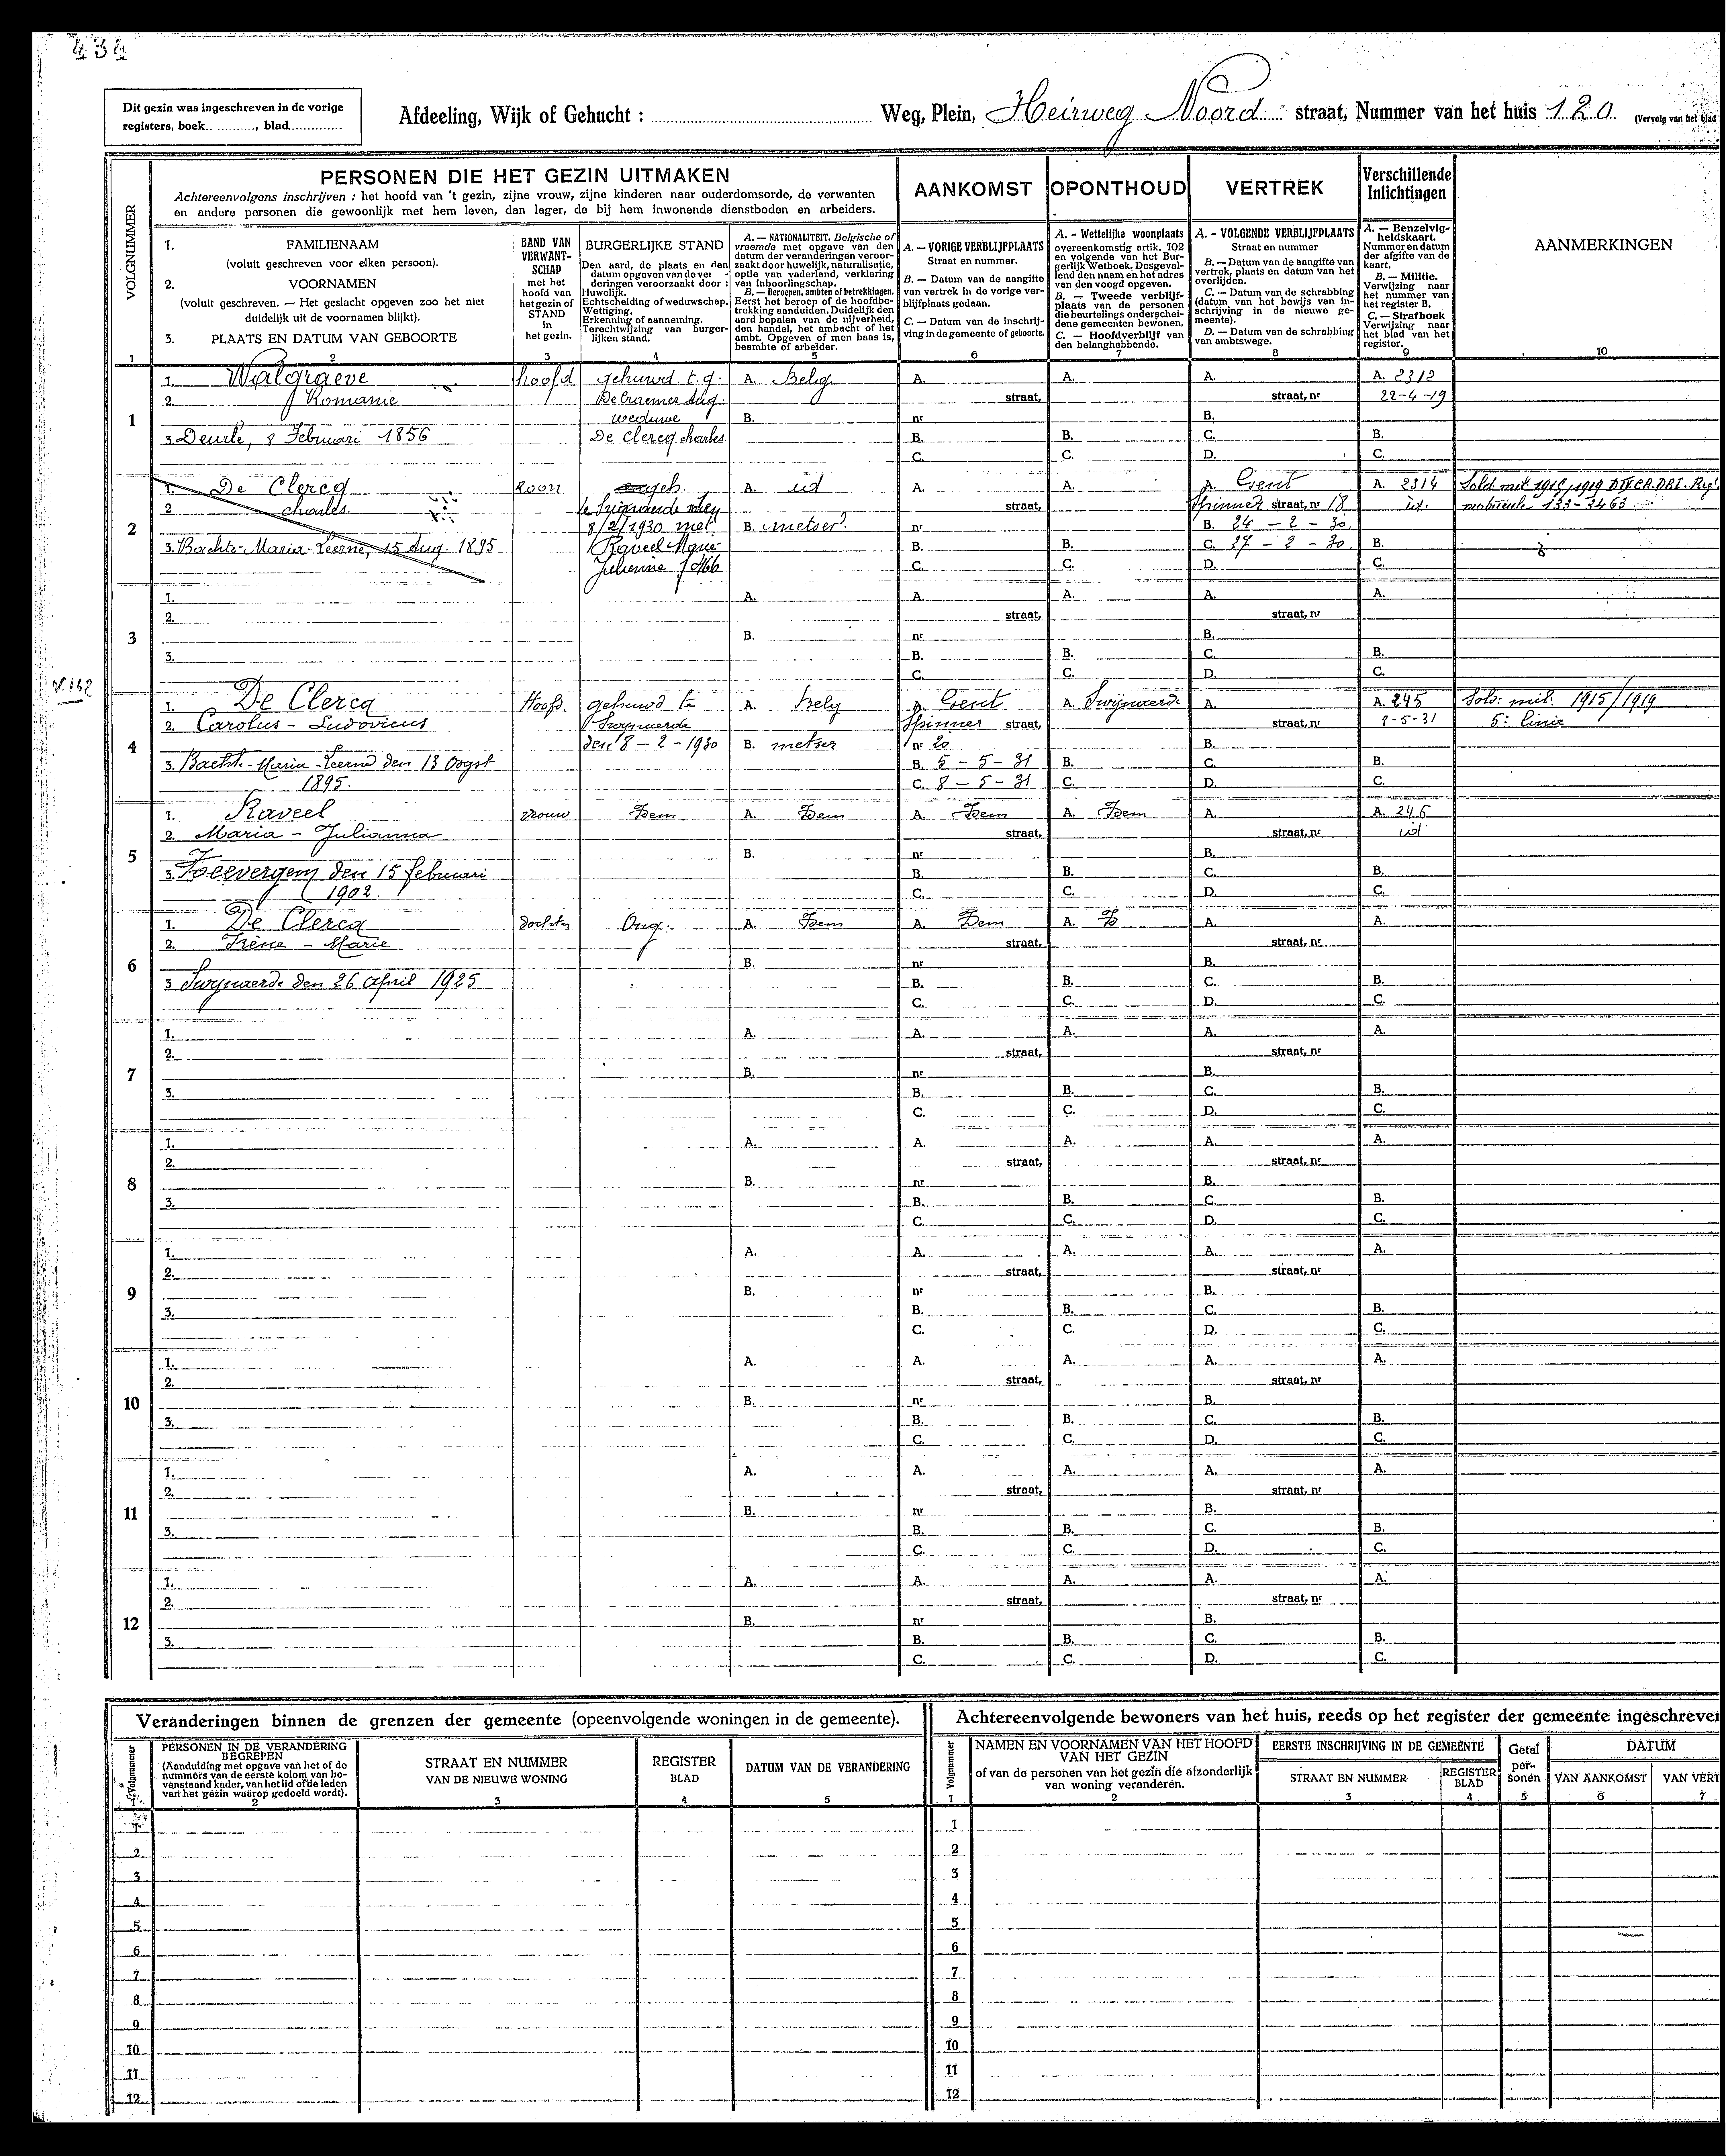 434
Dit gezin was ingeschreven in de vorige
registers, boek............, blad............
Afdeeling, Wijk of Gehucht : Weg, Plein, Heirweg Noord straat, Nummer van het huis 120 (Vervolg van het blad
VOLGNUMMER
PERSONEN DIE HET GEZIN UITMAKEN
Achtereenvolgens inschrijven : het hoofd van 't gezin, zijne vrouw, zijne kinderen naar ouderdomsorde, de verwanten
en andere personen die gewoonlijk met hem leven, dan lager, de bij hem inwonende dienstboden en arbeiders.
AANKOMST
OPONTHOUD
VERTREK
Verschillende
Inlichtingen
AANMERKINGEN
1. FAMILIENAAM
(voluit geschreven voor elken persoon).
2. VOORNAMEN
(voluit geschreven. — Het geslacht opgeven zoo het niet
duidelijk uit de voornamen blijkt).
3. PLAATS EN DATUM VAN GEBOORTE
BAND VAN
VERWANT-
SCHAP
met het
hoofd van
het gezin of
STAND
in
het gezin.
BURGERLIJKE STAND
Den aard, de plaats en den
datum opgeven van de ver-
deringen veroorzaakt door :
Huwelijk.
Echtscheiding of weduwschap.
Wettiging.
Erkenning of aanneming.
Terechtwijzing van burger-
lijken stand.
A. — NATIONALITEIT. Belgische of
vreemde met opgave van den
datum der veranderingen veroor-
zaakt door huwelijk, naturalisatie,
optie van vaderland, verklaring
van inboorlingschap.
B. — Beroepen, ambten of betrekkingen.
Eerst het beroep of de hoofdbe-
trekking aanduiden. Duidelijk den
aard bepalen van de nijverheid,
den handel, het ambacht of het
ambt. Opgeven of men baas is,
beambte of arbeider.
A. — VORIGE VERBLIJFPLAATS
Straat en nummer.
B. — Datum van de aangifte
van vertrek in de vorige ver-
blijfplaats gedaan.
C. — Datum van de inschrij-
ving in de gemeente of geboorte.
A. - Wettelijke woonplaats
overeenkomstig artik. 102
en volgende van het Bur-
gerlijk Wetboek. Desgeval-
lend den naam en het adres
van den voogd opgeven.
B. — Tweede verblijf-
plaats van de personen
die beurtelings onderschei-
dene gemeenten bewonen.
C. — Hoofdverblijf van
den belanghebbende.
A. - VOLGENDE VERBLIJFPLAATS
Straat en nummer
B. — Datum van de aangifte van
vertrek, plaats en datum van het
overlijden.
C. — Datum van de schrabbing
(datum van het bewijs van in-
schrijving in de nieuwe ge-
meente).
D. — Datum van de schrabbing
van ambtswege.
A. — Eenzelvig-
heidskaart.
Nummer en datum
der afgifte van de
kaart.
B. — Militie.
Verwijzing naar
het nummer van
het register B.
C. — Strafboek
Verwijzing naar
het blad van het
register.
1 2 3 4 5 6 7 8 9 10
1
1. Walgraeve hoofd gehuwd t.g. A. Belg A. A. A. A. 2312
2. Romanie De Craemer Aug. straat, straat, nr 22-4-19
weduwe B. nr B.
3. Deurle, 8 Februari 1856 De Clercq charles B. B. C. B.
C. C. D. C.
2
1. De Clercq zoon geh. A. id A. A. A. Gent A. 2314 Sold. mil. 1915/1919
2 charles. straat, Spinner straat, nr 18 id. matricule 133-3463
8/2/1930 met B. metser nr B. 24 - 2 - 30.
3. Bachte-Maria-Leerne, 15 Aug. 1895 Raveel Marie B. B. C. 27 - 2 - 30. B.
Julienne C. C. D. C.
3
1. A. A. A. A. A.
2. straat, straat, nr
B. nr B.
3. B. B. C. B.
C. C. D. C.
v. 142
4
1. De Clercq Hoofd. gehuwd te A. Belg A. Gent A. Swijnaerde A. A. 245 Sold: mil. 1915/1919
2. Carolus - Ludovicus Swynaerde Spinner straat, straat, nr 9-5-31 5e linie
den 8 - 2 - 1930 B. metser nr 20 B.
3. Bachte-Maria-Leerne den 13 Oogst B. 5 - 5 - 31 B. C. B.
1895. C. 8 - 5 - 31 C. D. C.
5
1. Raveel vrouw Idem A. Idem A. Idem A. Idem A. A. 246
2. Maria - Julianna straat, straat, nr id.
B. nr B.
3. Zevergem den 15 februari B. B. C. B.
1902. C. C. D. C.
6
1. De Clercq dochter Ong. A. Idem A. Idem A. Id A. A.
2. Irène - Marie straat, straat, nr
B. nr B.
3 Swynaerde den 26 April 1925 B. B. C. B.
C. C. D. C.
7
1. A. A. A. A. A.
2. straat, straat, nr
B. nr B.
3. B. B. C. B.
C. C. D. C.
8
1. A. A. A. A. A.
2. straat, straat, nr
B. nr B.
3. B. B. C. B.
C. C. D. C.
9
1. A. A. A. A. A.
2. straat, straat, nr
B. nr B.
3. B. B. C. B.
C. C. D. C.
10
1. A. A. A. A. A.
2. straat, straat, nr
B. nr B.
3. B. B. C. B.
C. C. D. C.
11
1. A. A. A. A. A.
2. straat, straat, nr
B. nr B.
3. B. B. C. B.
C. C. D. C.
12
1. A. A. A. A. A.
2. straat, straat, nr
B. nr B.
3. B. B. C. B.
C. C. D. C.
Veranderingen binnen de grenzen der gemeente (opeenvolgende woningen in de gemeente).
Volgnummer
PERSONEN IN DE VERANDERING
BEGREPEN
(Aanduiding met opgave van het of de
nummers van de eerste kolom van bo-
venstaand kader, van het lid of de leden
van het gezin waarop gedoeld wordt).
STRAAT EN NUMMER
VAN DE NIEUWE WONING
REGISTER
BLAD
DATUM VAN DE VERANDERING
1 2 3 4 5
1
2
3
4
5
6
7
8
9
10
11
12
Achtereenvolgende bewoners van het huis, reeds op het register der gemeente ingeschreven
Volgnummer
NAMEN EN VOORNAMEN VAN HET HOOFD
VAN HET GEZIN
of van de personen van het gezin die afzonderlijk
van woning veranderen.
EERSTE INSCHRIJVING IN DE GEMEENTE
STRAAT EN NUMMER
REGISTER
BLAD
Getal
per-
sonen
DATUM
VAN AANKOMST VAN VERT
1 2 3 4 5 6 7
1
2
3
4
5
6
7
8
9
10
11
12